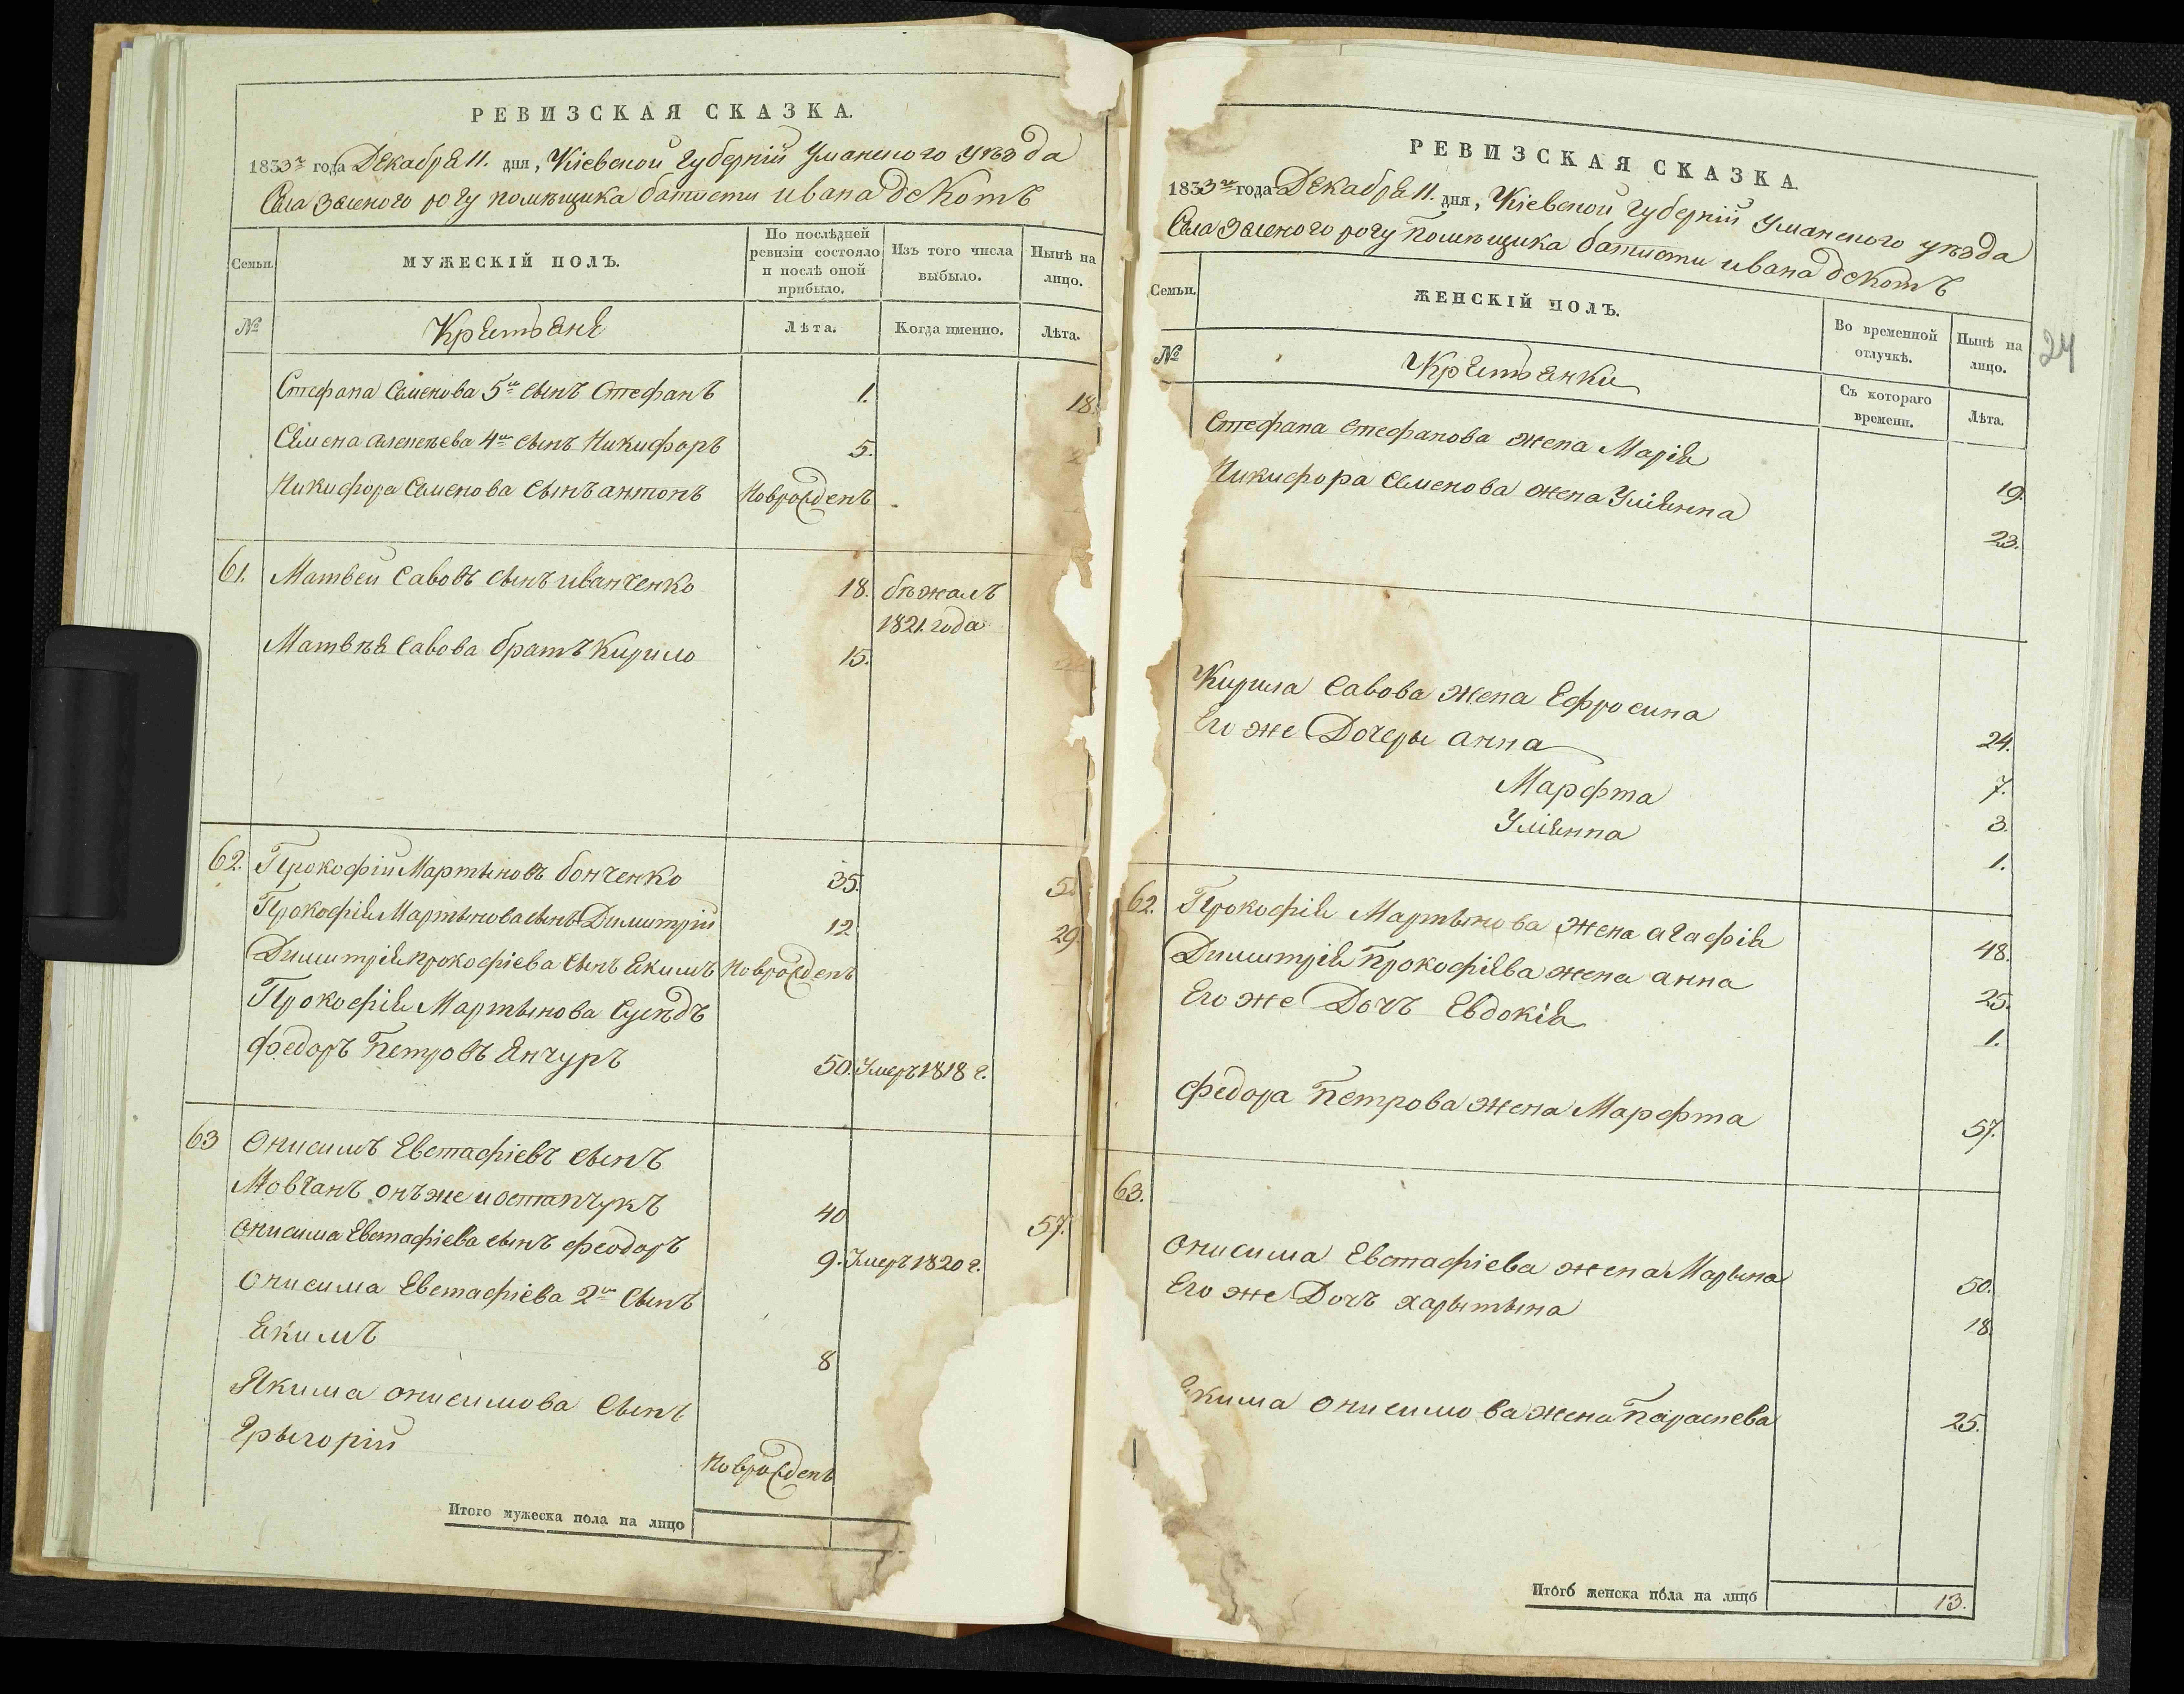 РЕВИЗСКАЯ СКАЗКА.
1833го года Декабря 11. дня, Кіевской Губерніи Уманского уѣзда
Села Зеленого рогу помѣщика батисти ивана декотъ
Семьи.
МУЖЕСКІЙ ПОЛЪ.
По послѣдней ревизіи состояло и послѣ оной прибыло.
Изъ того числа выбыло.
Нынѣ на лицо.
№
Крестьяне
Лѣта.
Когда именно.
Лѣта.
Стефана Семенова 5й сынъ Стефанъ 1. 18.
Семена алексѣева 4й сынъ Никифоръ 5. 2
Никифора Семенова сынъ антонъ новрожденъ
61. Матвей Савовъ сынъ иванченко 18. бѣжалъ
1821. года
Матвѣя Савова братъ Кирило 15.
62. Прокофій Мартыновъ бонченко 35. 5
Прокофія Мартынова сынъ Димитрій 12. 29.
Димитрія прокофіева сынъ Екимъ новрожденъ
Прокофія Мартынова Сусѣдъ
федоръ Петровъ Янчуръ 50. Умеръ 1818 г.
63 Онисимъ Евстафіевъ сынъ
Мовчанъ онъ же и остапчукъ 40 57.
Онисима Евстафіева сынъ феодоръ 9. Умеръ 1820 г.
Онисима Евстафіева 2й Сынъ
Якимъ 8
Якима онисимова Сынъ
Грыгорій новрожденъ
Итого мужеска пола на лицо
РЕВИЗСКАЯ СКАЗКА.
1833го года Декабря 11. дня, Кіевской Губерніи Уманского уѣзда
Села Зеленого рогу Помѣщика батисти ивана декотъ
24
Семьи.
ЖЕНСКІЙ ПОЛЪ.
Во временной отлучкѣ.
Нынѣ на лицо.
№
Крестьянки
Съ котораго времени.
Лѣта.
Стефана Стефанова жена Марія 19.
Никифора Семенова жена Уліянна 23.
Кирила Савова жена Ефросина 24.
Его же Дочеры анна 7.
Марфта 3.
Уліянна 1.
62. Прокофія Мартынова жена агафія 48.
Димитрія Прокофіева жена анна 25.
Его же Дочъ Евдокія 1.
Федора Петрова жена Марфта 57.
63.
Онисима Евстафіева жена Марына 50.
Его же Дочъ харытына 18.
кима онисимова жена Параскева 25.
Итого женска пола на лицо 13.